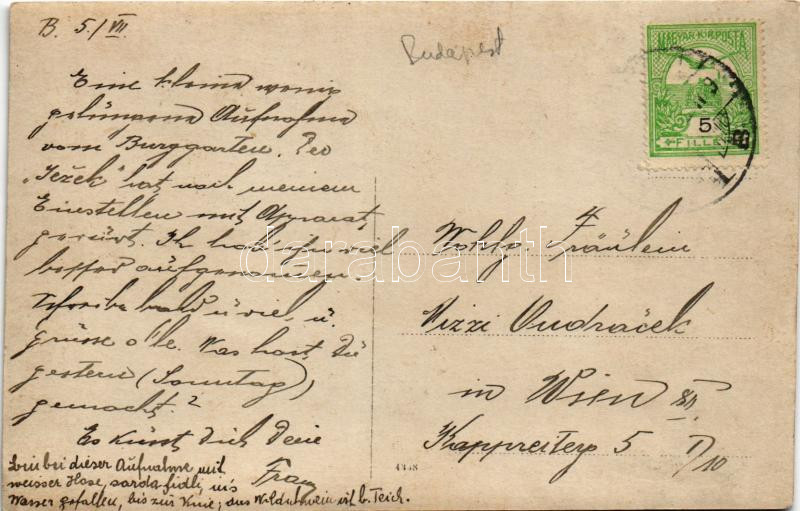 B. 5./VII.
Budapest
MAGYAR KIR. POSTA
5
FILLÉR
Eine kleine wenig
gelungene Aufnahme
vom Burggarten. Der
"Ježek" hat nach meinem
Einstellen mit Apparat
gerührt. Ich habe ihn viel
besser aufgenommen.
Schreibe bald u viel, u.
grüsse alle. Was hast Du
gestern (Sonntag)
gemacht?
Es küsst Dich Dein
Franz
Wohlg. Fräulein
Mizzi Ondráček
in Wien XII.
Kappreiterg 5 I/10
Bin bei dieser Aufnahme mit
weisser Hose, ins
Wasser gefallen, bis zur Knie; das ist b. Teich.
darabanth